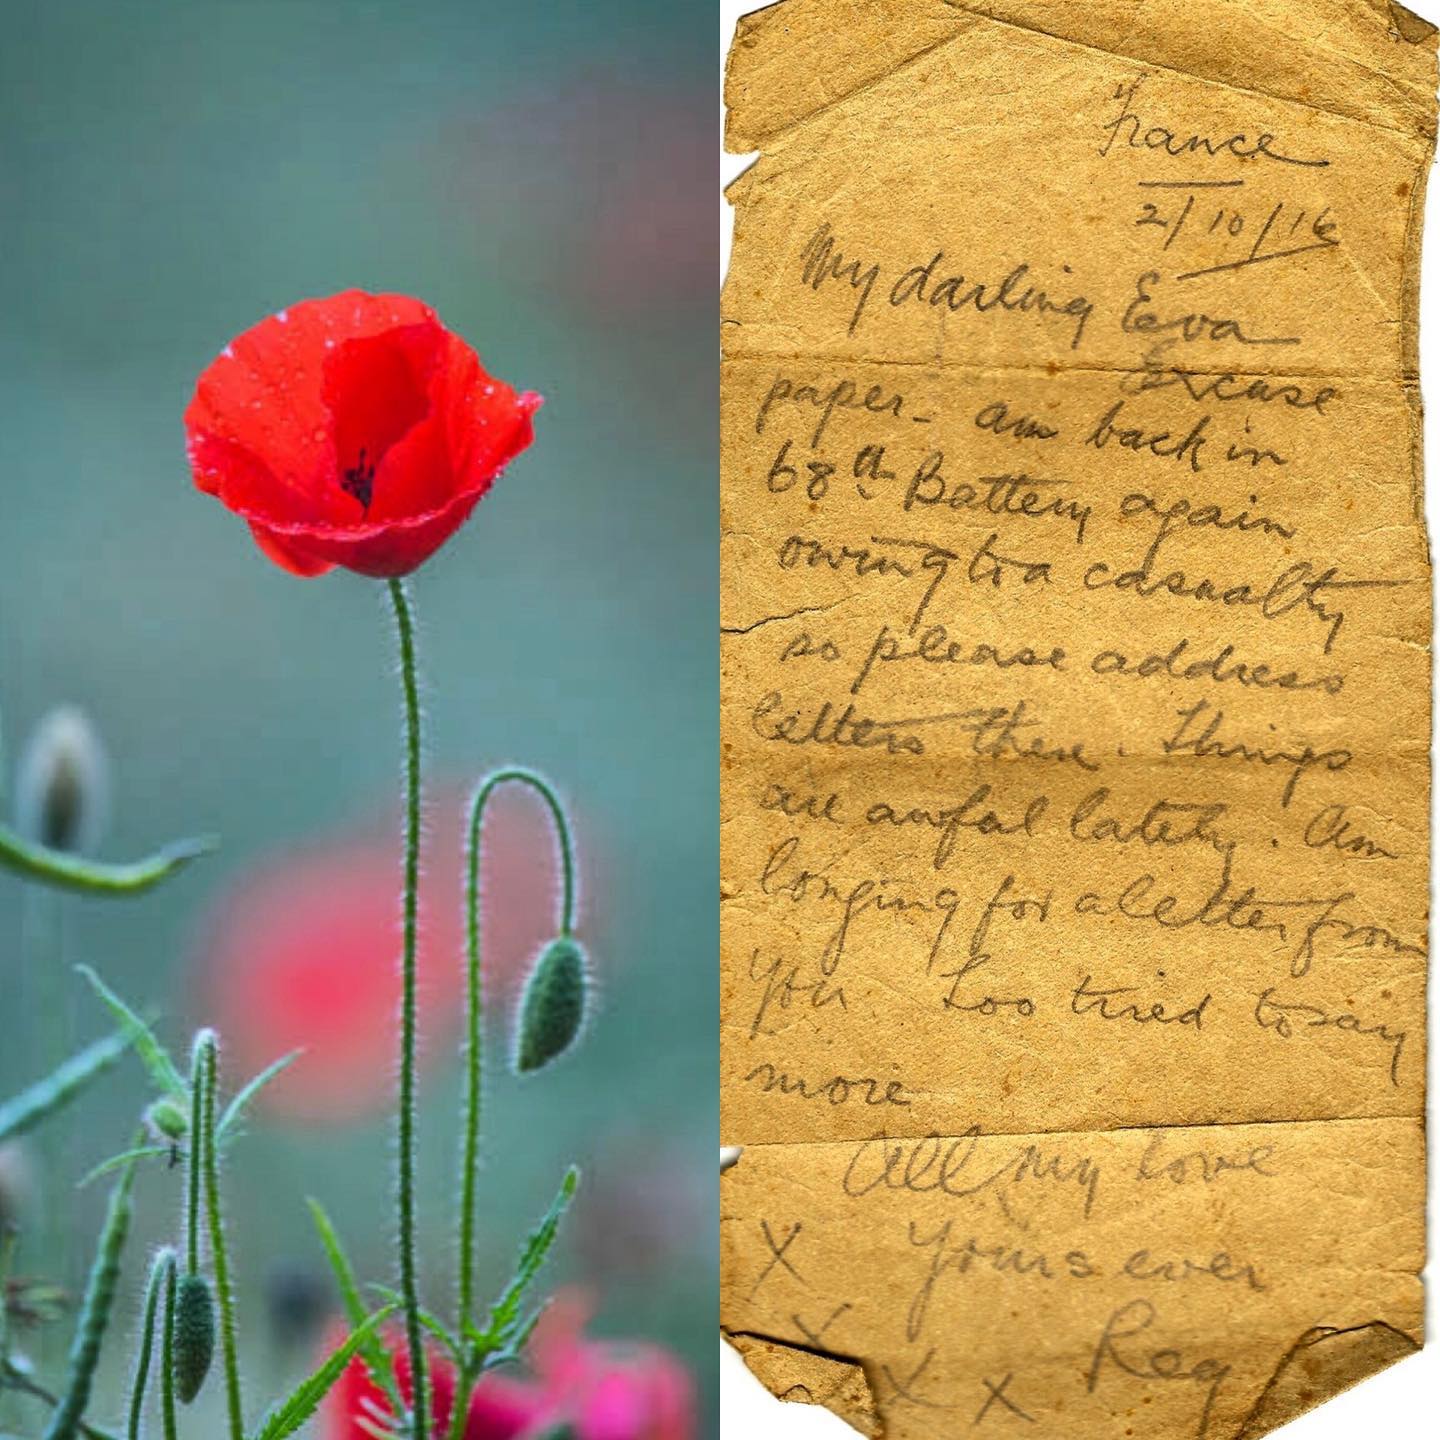 France
2/10/16
My darling Eva
Excuse
paper - am back in
68th Battery again
owing to a casualty
so please address
letters there. Things
are awful lately. Am
longing for a letter from
you. Too tired to say
more
All my love
X Yours ever
X Reg
X X